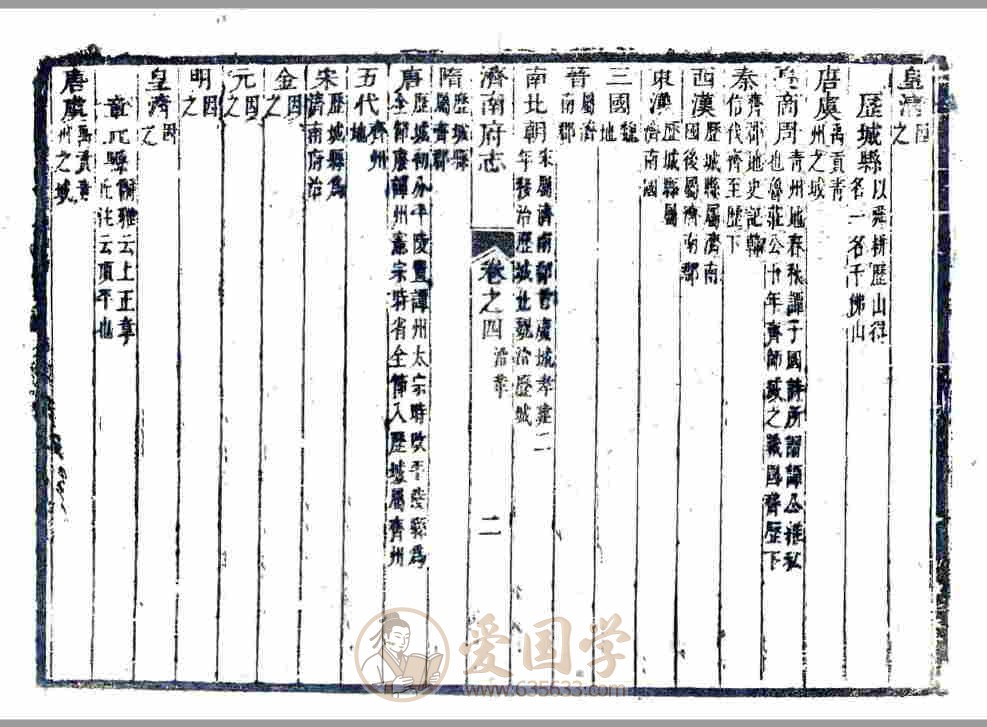 皇清因之
歷城縣以舜耕歷山得名一名千佛山
唐虞禹貢青州之域
商周青州地春秋譚子國詩所謂譚公維私也魯莊公十年齊師滅之戰國齊歷下
秦齊郡地史記韓信伐齊至歷下
西漢歷城縣屬濟南國後屬濟南郡
東漢歷城縣屬濟南國
三國魏地
晉屬濟南郡
南北朝宋屬濟南郡 城孝建二年移治歷城北魏治歷城
濟南府志
卷之四
沿革
二
隋歷城縣屬齊郡
唐歷城初分平陵置譚州太宗時改平陵縣為全節廢譚州憲宗時省全節入歷城屬齊州
五代齊州地
宋歷城縣為濟南府治
金因之
元因之
明因之
皇清因之
章丘縣爾雅云上正章丘注云頂平也
唐虞禹貢青州之域
爱国学
www.635633.com